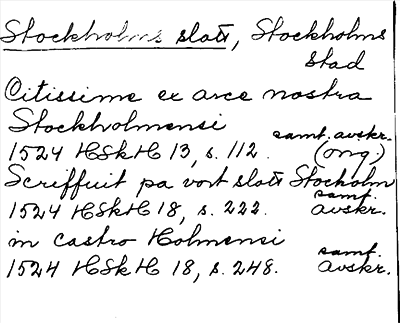 Stockholms slott, Stockholms
stad
Citissime ex arce nostra
Stockholmensi
samt. avskr.
1524 HSkH 13, s. 112. (orig)
Screffuit pa vort slott Stocholm
samt.
1524 HSkH 18, s. 222. avskr.
in castro Holmensi
samt.
1524 HSkH 18, s. 248. avskr.